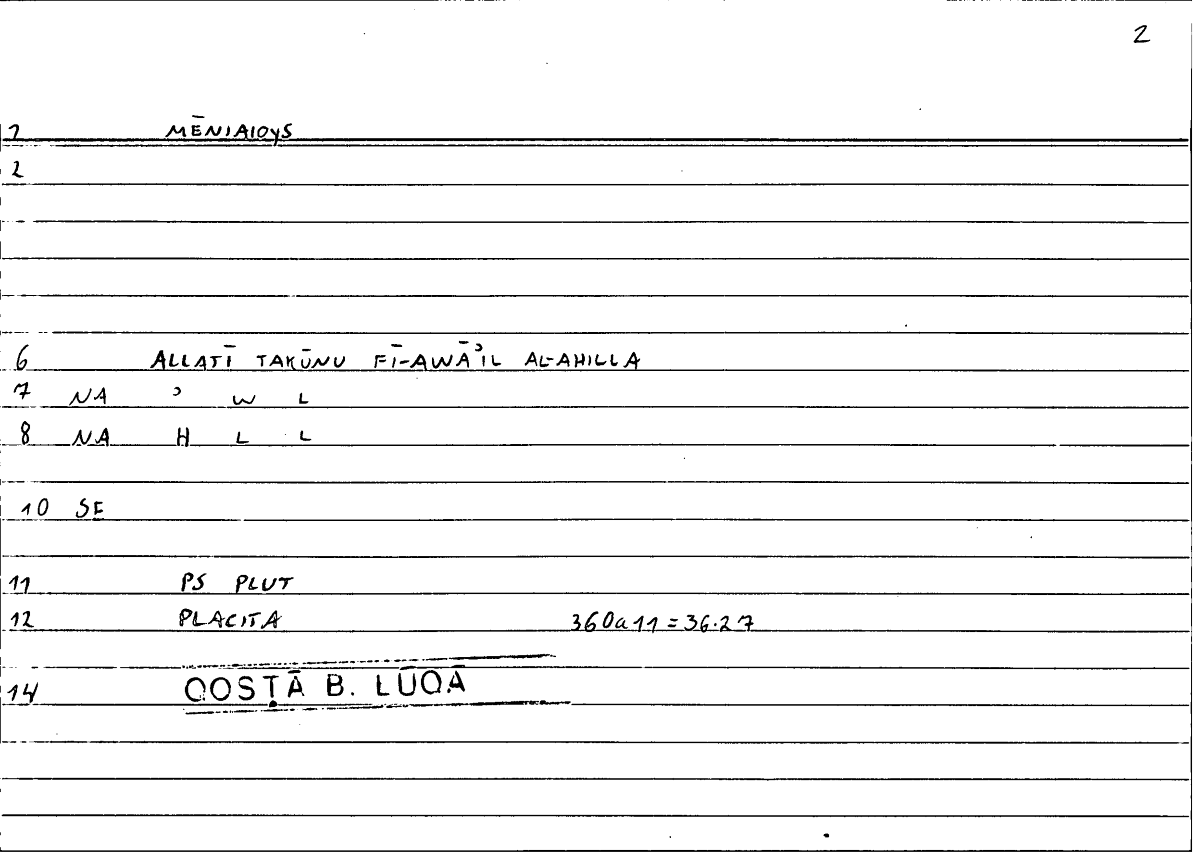 2
1 MĒNIAIOYS
2
6 ALLATĪ TAKŪNU FĪ-AWĀʾIL AL-AHILLA
7 NA ʾ W L
8 NA H L L
10 SE
11 PS PLUT
12 PLACITA 360a11=36.27
14 QOSṬĀ B. LŪQĀ